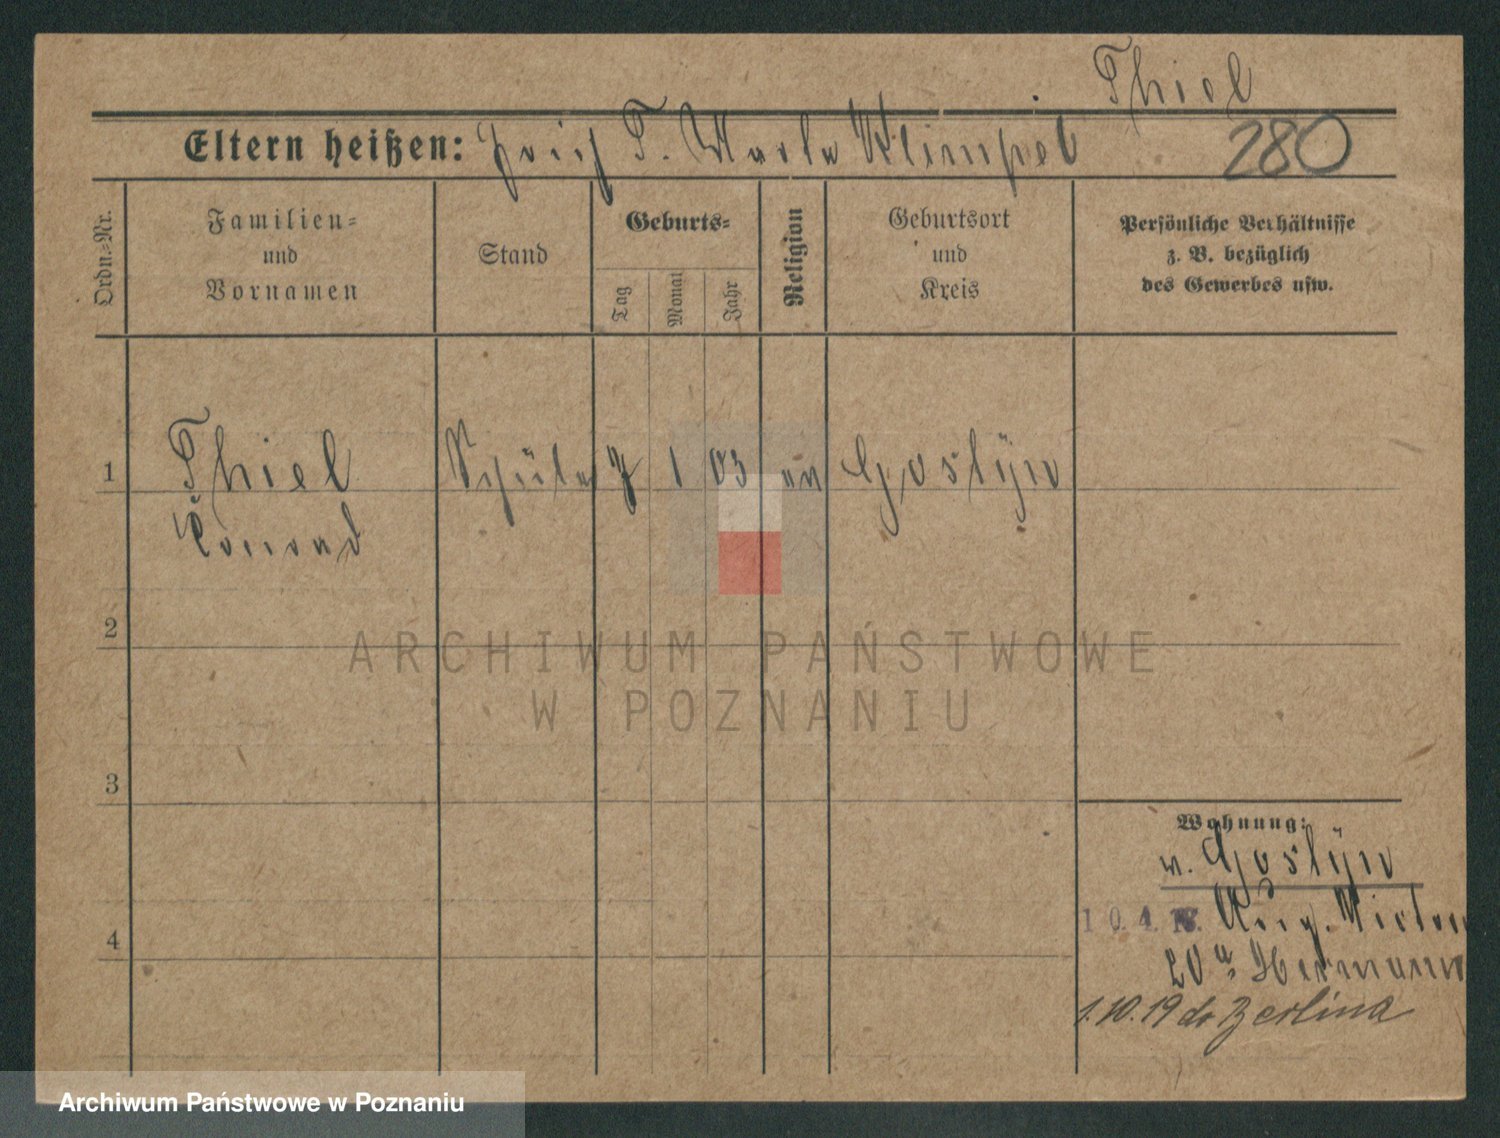 Thiel
Eltern heißen: T. Marta Klimpel 280
Ordn.-Nr.
Familien-
und
Vornamen
Stand
Geburts-
Tag
Monat
Jahr
Religion
Geburtsort
und
Kreis
Persönliche Verhältnisse
z. B. bezüglich
des Gewerbes usw.
1 Thiel Schüler 7 1 03 ev Gostÿn
Conrad
2
ARCHIWUM PAŃSTWOWE
W POZNANIU
3
Wohnung:
v. Gostÿn
4
10.4.18. Aug. Victor
20 a Hermann
1.10.19 do Berlina
Archiwum Państwowe w Poznaniu